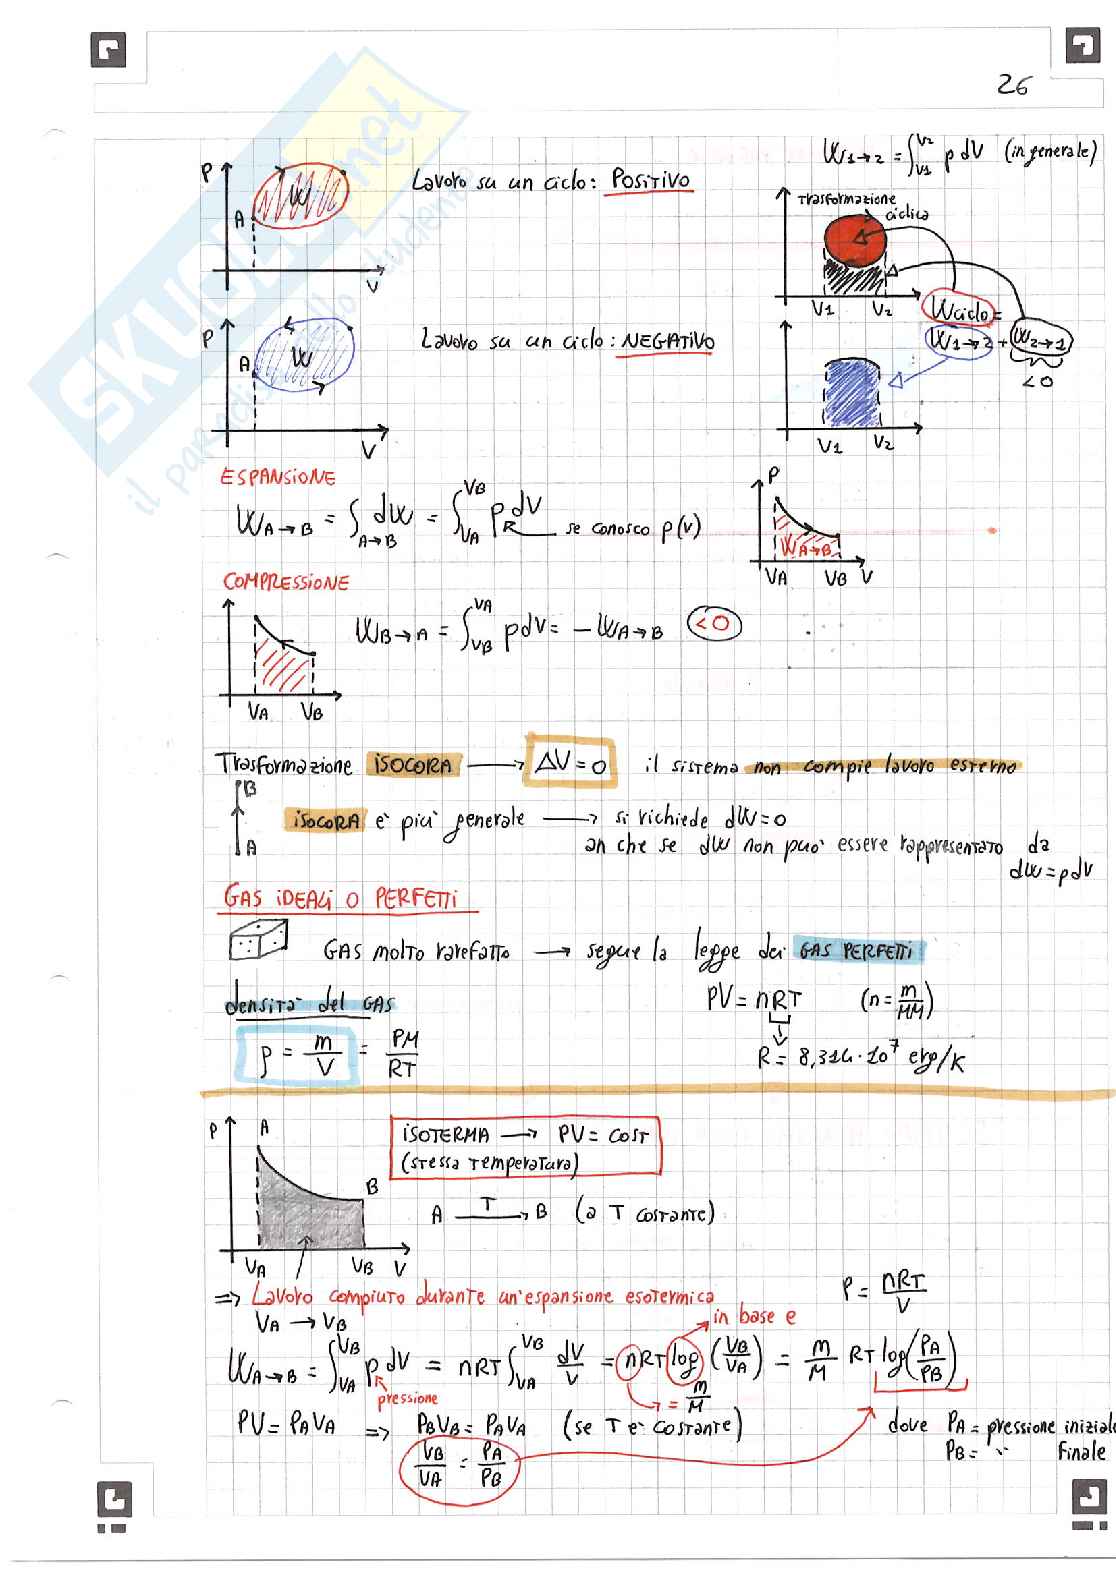 26
W1→2 = ∫V1V2 p dV (in generale)
P
W
A
V
Lavoro su un ciclo: POSITIVO
Trasformazione
ciclica
V1 V2
Wciclo =
W1→2 + W2→1
<0
P
W
A
V
Lavoro su un ciclo: NEGATIVO
V1 V2
ESPANSIONE
WA→B = ∫A→B dW = ∫VAVB p dV
se conosco p(v)
P
WA→B
VA VB V
COMPRESSIONE
WB→A = ∫VBVA pdV = − WA→B <0
VA VB
Trasformazione ISOCORA → ΔV = 0 il sistema non compie lavoro esterno
B
A
ISOCORA e' piu' generale → si richiede dW=0
an che se dW non puo' essere rappresentato da
dW = pdV
GAS IDEALI O PERFETTI
GAS molto rarefatto → segue la legge dei GAS PERFETTI
densita' del GAS
PV = nRT (n = m/MM)
ρ = m/V = PM/RT
R = 8,314·10⁷ erg/K
P
A
B
VA VB V
ISOTERMA → PV = COST
(stessa temperatura)
A T→ B (a T costante)
⇒ Lavoro compiuto durante un'espansione esotermica
P = nRT/V
VA → VB
in base e
WA→B = ∫VAVB p dV = nRT ∫VAVB dV/V = nRT log (VB/VA) = m/M RT log(PA/PB)
pressione
= m/M
PV = PAVA ⇒ PBVB = PAVA (se T e' costante)
dove PA = pressione iniziale
PB = " Finale
VB/VA = PA/PB
SKUOLA.net
il paradiso dello studente